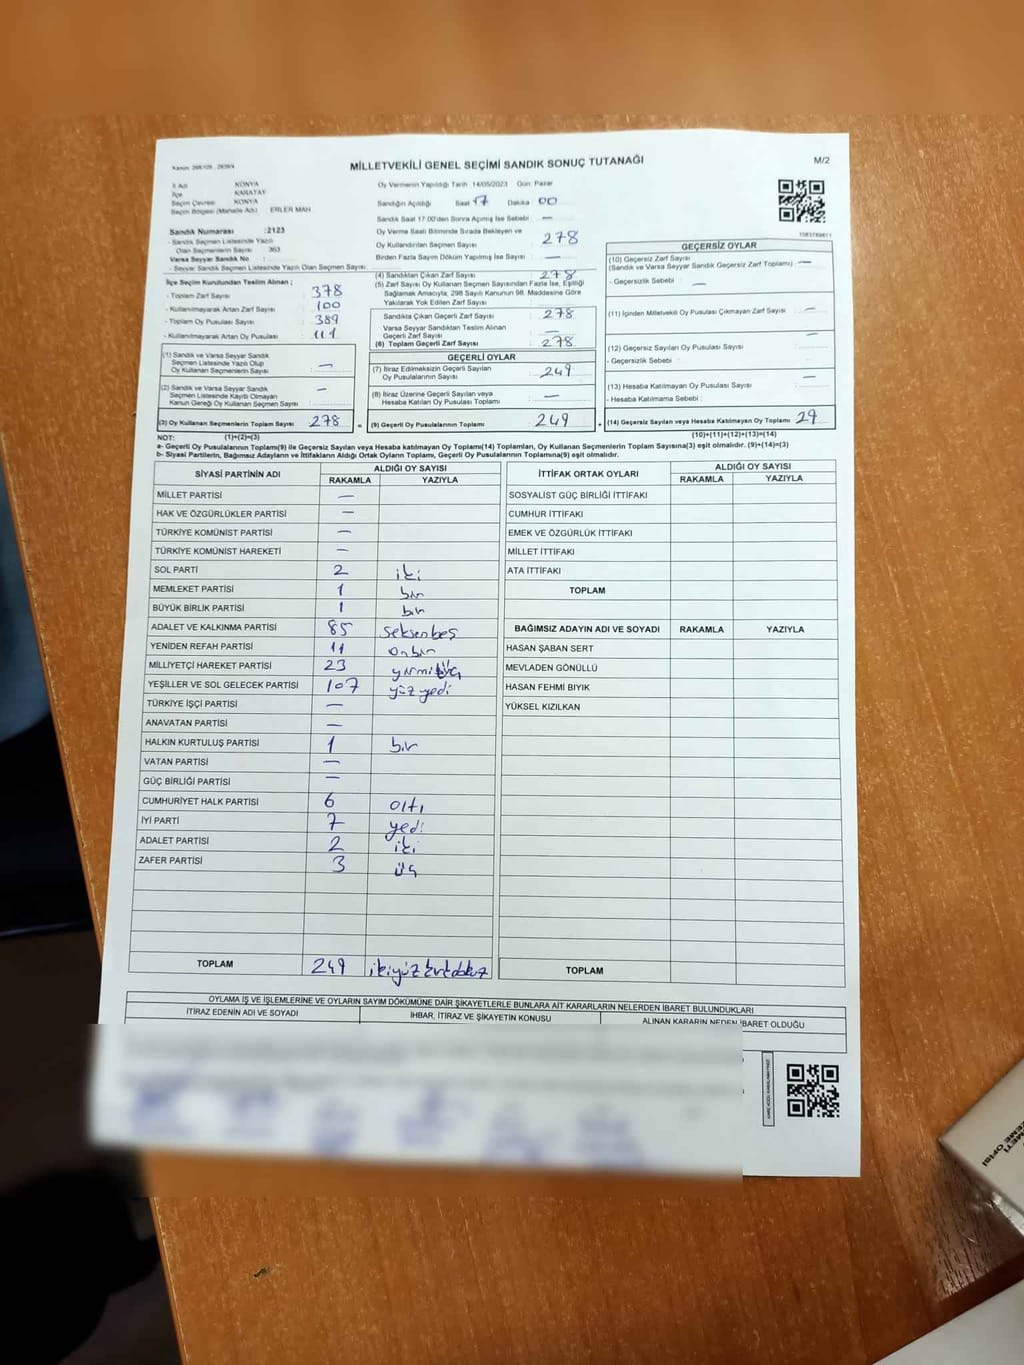 MİLLETVEKİLİ GENEL SEÇİMİ SANDIK SONUÇ TUTANAĞI
M/2
İl Adı KONYA
İlçe KARATAY
Seçim Çevresi KONYA
Seçim Bölgesi (Mahalle Adı) ERLER MAH.
Oy Vermenin Yapıldığı Tarih 14/05/2023 Gün Pazar
Sandığın Açıldığı Saat 17 Dakika 00
Sandık Saat 17:00'den Sonra Açılmış İse Sebebi : —
Sandık Numarası :2123
- Sandık Seçmen Listesinde Yazılı
Olan Seçmenlerin Sayısı 363
Varsa Seyyar Sandık No :
- Seyyar Sandık Seçmen Listesinde Yazılı Olan Seçmen Sayısı :
Oy Verme Saati Bitiminde Sırada Bekleyen ve
Oy Kullandırılan Seçmen Sayısı : 278
Birden Fazla Sayım Döküm Yapılmış İse Sayısı : —
İlçe Seçim Kurulundan Teslim Alınan ;
- Toplam Zarf Sayısı : 378
- Kullanılmayarak Artan Zarf Sayısı : 100
- Toplam Oy Pusulası Sayısı : 389
- Kullanılmayarak Artan Oy Pusulası : 111
(4) Sandıktan Çıkan Zarf Sayısı : 278
(5) Zarf Sayısı Oy Kullanan Seçmen Sayısından Fazla İse, Eşitliği
Sağlamak Amacıyla, 298 Sayılı Kanunun 98. Maddesine Göre
Yakılarak Yok Edilen Zarf Sayısı
Sandıkta Çıkan Geçerli Zarf Sayısı : 278
Varsa Seyyar Sandıktan Teslim Alınan
Geçerli Zarf Sayısı : —
(6) Toplam Geçerli Zarf Sayısı : 278
(1) Sandık ve Varsa Seyyar Sandık
Seçmen Listesinde Yazılı Olup
Oy Kullanan Seçmenlerin Sayısı : —
(2) Sandık ve Varsa Seyyar Sandık
Seçmen Listesinde Kayıtlı Olmayan
Kanun Gereği Oy Kullanan Seçmen Sayısı : —
(3) Oy Kullanan Seçmenlerin Toplam Sayısı : 278
GEÇERLİ OYLAR
(7) İtiraz Edilmeksizin Geçerli Sayılan
Oy Pusulalarının Sayısı : 249
(8) İtiraz Üzerine Geçerli Sayılan veya
Hesaba Katılan Oy Pusulası Toplamı : —
(9) Geçerli Oy Pusulalarının Toplamı : 249
GEÇERSİZ OYLAR
(10) Geçersiz Zarf Sayısı
(Sandık ve Varsa Seyyar Sandık Geçersiz Zarf Toplamı) : —
- Geçersizlik Sebebi : —
(11) İçinden Milletvekili Oy Pusulası Çıkmayan Zarf Sayısı : —
(12) Geçersiz Sayılan Oy Pusulası Sayısı : —
- Geçersizlik Sebebi :
(13) Hesaba Katılmayan Oy Pusulası Sayısı : —
- Hesaba Katılmama Sebebi :
(14) Geçersiz Sayılan veya Hesaba Katılmayan Oy Toplamı 29
NOT: (1)+(2)=(3) (10)+(11)+(12)+(13)=(14)
a- Geçerli Oy Pusulalarının Toplamı(9) ile Geçersiz Sayılan veya Hesaba katılmayan Oy Toplamı(14) Toplamları, Oy Kullanan Seçmenlerin Toplam Sayısına(3) eşit olmalıdır. (9)+(14)=(3)
b- Siyasi Partilerin, Bağımsız Adayların ve İttifakların Aldığı Ortak Oyların Toplamı, Geçerli Oy Pusulalarının Toplamına(9) eşit olmalıdır.
SİYASİ PARTİNİN ADI ALDIĞI OY SAYISI
RAKAMLA YAZIYLA
MİLLET PARTİSİ —
HAK VE ÖZGÜRLÜKLER PARTİSİ —
TÜRKİYE KOMÜNİST PARTİSİ —
TÜRKİYE KOMÜNİST HAREKETİ —
SOL PARTİ 2 iki
MEMLEKET PARTİSİ 1 bir
BÜYÜK BİRLİK PARTİSİ 1 bir
ADALET VE KALKINMA PARTİSİ 85 seksenbeş
YENİDEN REFAH PARTİSİ 11 onbir
MİLLİYETÇİ HAREKET PARTİSİ 23 yirmi üç
YEŞİLLER VE SOL GELECEK PARTİSİ 107 yüz yedi
TÜRKİYE İŞÇİ PARTİSİ —
ANAVATAN PARTİSİ —
HALKIN KURTULUŞ PARTİSİ 1 bir
VATAN PARTİSİ —
GÜÇ BİRLİĞİ PARTİSİ —
CUMHURİYET HALK PARTİSİ 6 altı
İYİ PARTİ 7 yedi
ADALET PARTİSİ 2 iki
ZAFER PARTİSİ 3 üç
TOPLAM 249 ikiyüz kırkdokuz
İTTİFAK ORTAK OYLARI ALDIĞI OY SAYISI
RAKAMLA YAZIYLA
SOSYALİST GÜÇ BİRLİĞİ İTTİFAKI
CUMHUR İTTİFAKI
EMEK VE ÖZGÜRLÜK İTTİFAKI
MİLLET İTTİFAKI
ATA İTTİFAKI
TOPLAM
BAĞIMSIZ ADAYIN ADI VE SOYADI RAKAMLA YAZIYLA
HASAN ŞABAN SERT
MEVLADEN GÖNÜLLÜ
HASAN FEHMİ BIYIK
YÜKSEL KIZILKAN
TOPLAM
OYLAMA İŞ VE İŞLEMLERİNE VE OYLARIN SAYIM DÖKÜMÜNE DAİR ŞİKAYETLERLE BUNLARA AİT KARARLARIN NELERDEN İBARET BULUNDUKLARI
İTİRAZ EDENİN ADI VE SOYADI İHBAR, İTİRAZ VE ŞİKAYETİN KONUSU ALINAN KARARIN NEDEN İBARET OLDUĞU